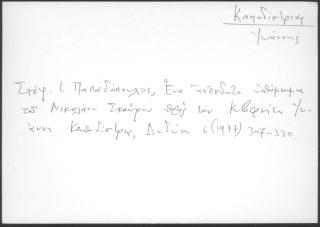 Καποδίστριας
Ἰωάννης
Στέφ. Ι. Παπαδόπουλος, Ἕνα ἀνέκδοτο ὑπόμνημα
τοῦ Νικολάου Σπηλιάδου πρὸς τὸν Κυβερνήτη Ἰω-
άννη Καποδίστρια, Δωδώνη 6 (1977) 307-330.